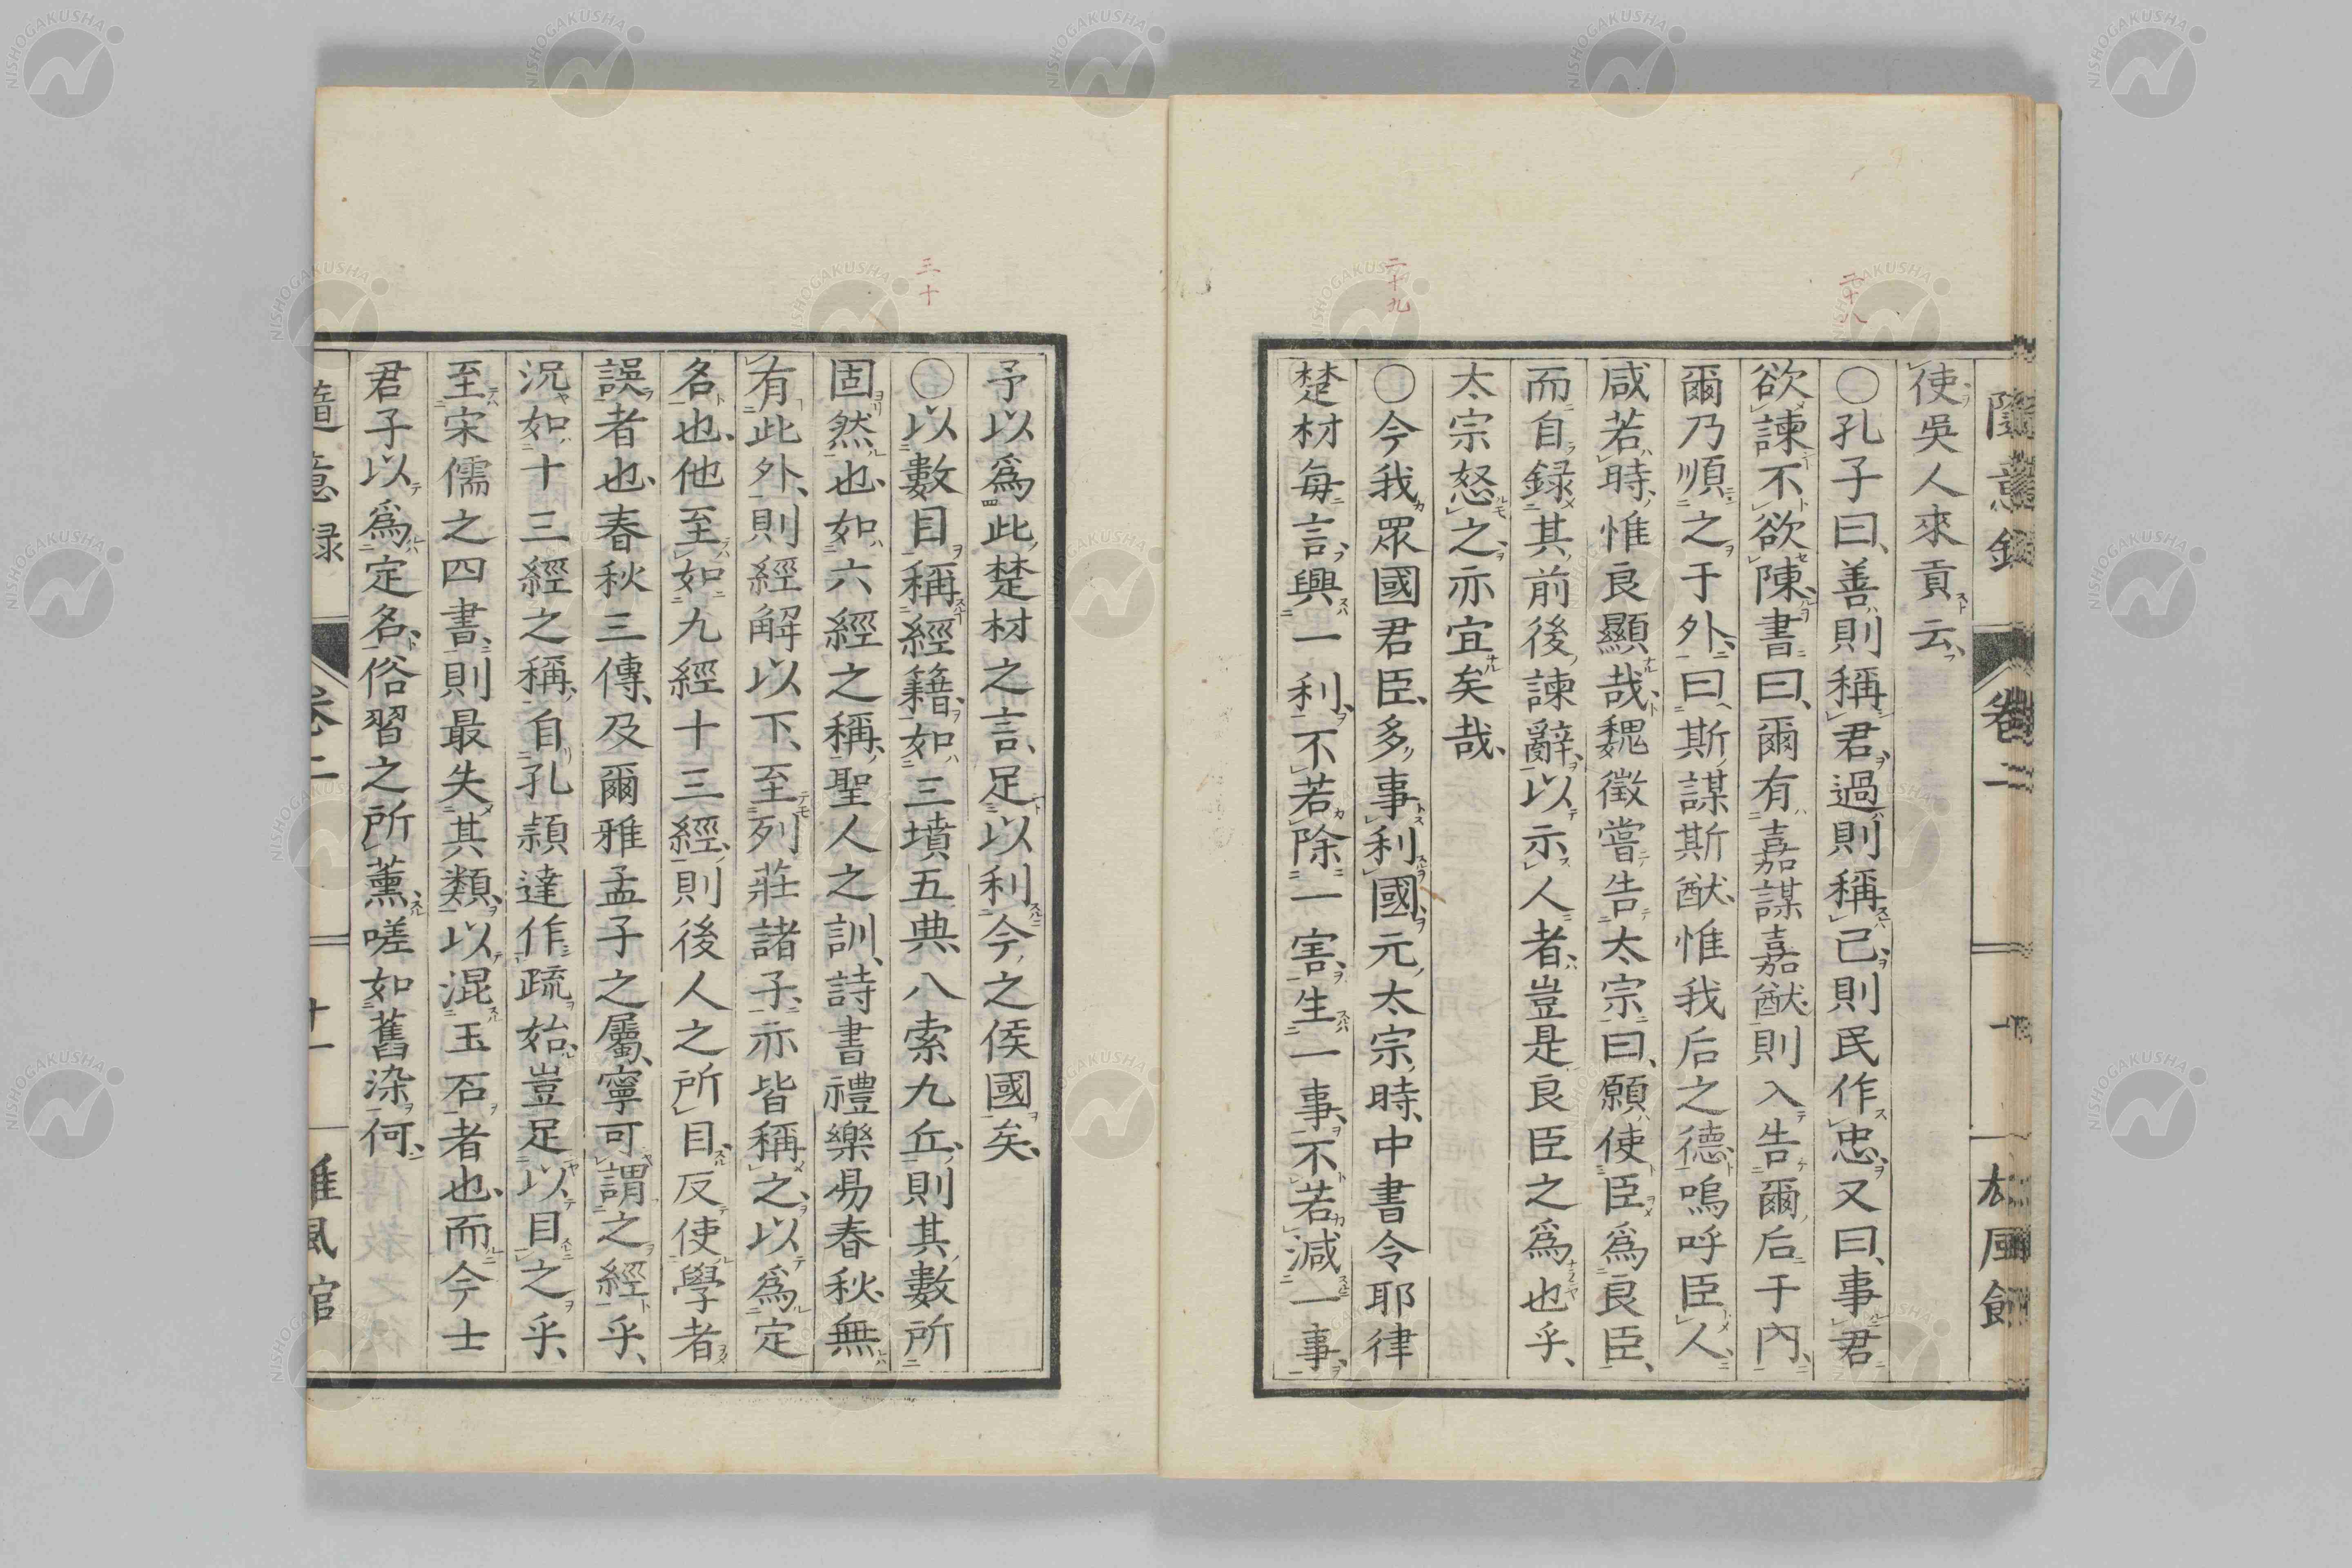 隨意録 卷二 十
使吳人來貢云、
二十八
〇孔子曰、善則稱君、過則稱己、則民作忠、又曰、事君
欲諫不欲陳、書曰、爾有嘉謀嘉猷、則入告爾后于內、
爾乃順之于外、曰、斯謀斯猷、惟我后之德、嗚呼臣人
咸若時、惟良顯哉、魏徵嘗告太宗曰、願使臣爲良臣、
而自錄其前後諫辭、以示人者、豈是良臣之爲也乎、
太宗怒之、亦宜矣哉、
二十九
〇今我眾國君臣、多事利國、元太宗時、中書令耶律
楚材每言、興一利、不若除一害、生一事、不若減一事、
予以爲此楚材之言、足以利今之侯國矣、
三十
〇以數目稱經籍、如三墳五典、八索九丘、則其數所
固然也、如六經之稱、聖人之訓、詩書禮樂易春秋、無
有此外、則經解以下、至列莊諸子、亦皆稱之、以爲定
名也、他至如九經十三經、則後人之所目、反使學者
誤者也、春秋三傳、及爾雅孟子之屬、寧可謂之經乎、
況如十三經之稱、自孔頴達作疏始、豈足以目之乎、
至宋儒之四書、則最失其類、以混玉石者也、而今士
君子以爲定名、俗習之所薰、嗟如舊染何、
隨意録 卷二 十一
NISHOGAKUSHA